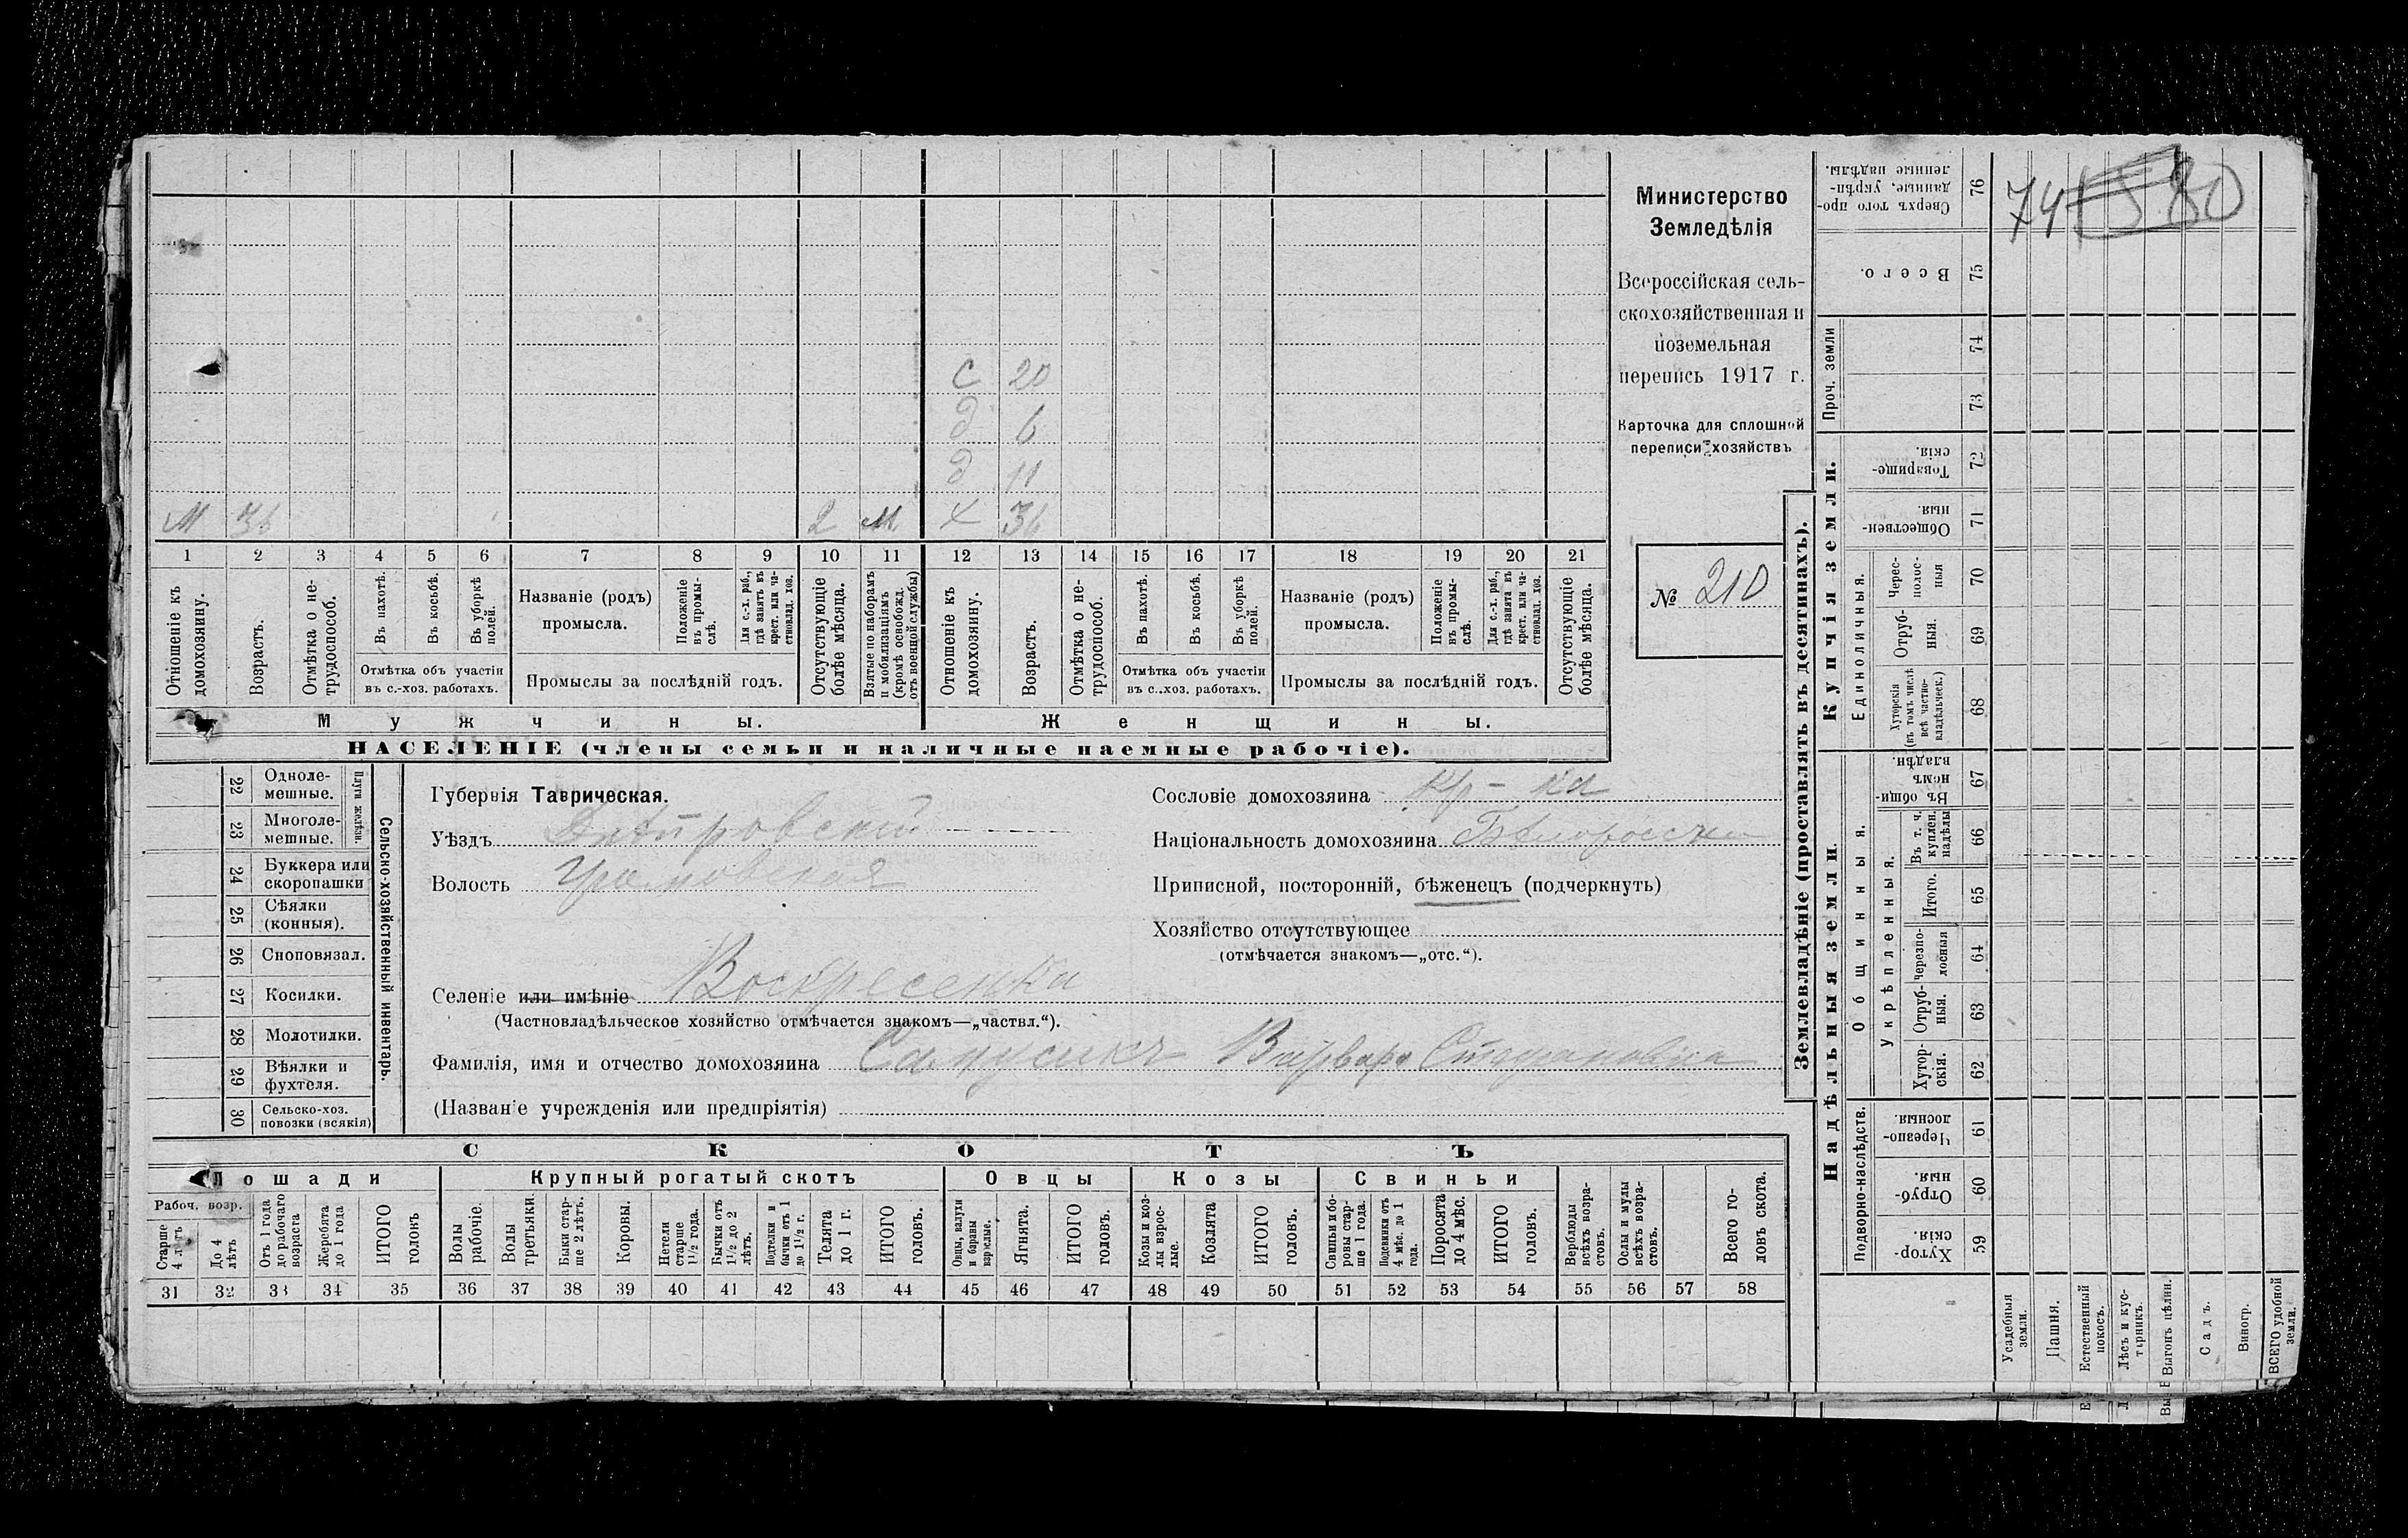 74 15 80
С 20
д 6
д 11
М 36 2 М Х 36
1 2 3 4 5 6 7 8 9 10 11 12 13 14 15 16 17 18 19 20 21
Отношеніе къ домохозяину.
Возрастъ.
Отмѣтка о не-трудоспособ.
Въ пахотѣ.
Въ косьбѣ.
Въ уборкѣ полей.
Отмѣтка объ участіи
въ с.-хоз. работахъ.
Названіе (родъ)
промысла.
Положеніе въ промы-слѣ.
Для с.-х. раб., гдѣ занятъ въ крест. или ча-стновлад. хоз.
Промыслы за послѣдній годъ.
Отсутствующіе болѣе мѣсяца.
Взятые по наборамъ и мобилизаціямъ (кромѣ освобожд. отъ военной службы)
Отношеніе къ домохозяину.
Возрастъ.
Отмѣтка о не-трудоспособ.
Въ пахотѣ.
Въ косьбѣ.
Въ уборкѣ полей.
Отмѣтка объ участіи
въ с..хоз. работахъ.
Названіе (родъ)
промысла.
Положеніе въ промы-слѣ.
Для с.-х. раб., гдѣ занята въ крест. или ча-стновлад. хоз.
Промыслы за послѣдній годъ.
Отсутствующіе болѣе мѣсяца.
Мужчины. Женщины.
НАСЕЛЕНІЕ (члены семьи и наличные наемные рабочіе).
Министерство
Земледѣлія
Всероссійская сель-
скохозяйственная и
поземельная
перепись 1917 г.
Карточка для сплошной
переписи хозяйствъ
№ 210
22 Одноле-мешные.
23 Многоле-мешные.
Плуги желѣзн.
24 Буккера или скоропашки
25 Сѣялки (конныя).
26 Сноповязал.
27 Косилки.
28 Молотилки.
29 Вѣялки и фухтеля.
30 Сельско-хоз. повозки (всякія)
Сельско-хозяйственный инвентарь.
Губернія Таврическая.
Уѣздъ Днѣпровскій
Волость
Селеніе или имѣніе Воскресенка
(Частновладѣльческое хозяйство отмѣчается знакомъ—„частвл.“).
Фамилія, имя и отчество домохозяина Самусикъ Варвара Степановна
(Названіе учрежденія или предпріятія)
Сословіе домохозяина кр-ка
Національность домохозяина
Приписной, посторонній, бѣженецъ (подчеркнуть)
Хозяйство отсутствующее
(отмѣчается знакомъ—„отс.“).
СКОТЪ
Лошади Крупный рогатый скотъ Овцы Козы Свиньи
Рабоч. возр.
Старше 4 лѣтъ
До 4 лѣтъ
Отъ 1 года до рабочаго возраста
Жеребята до 1 года
ИТОГО головъ
Волы рабочіе.
Волы третьяки.
Быки стар-ше 2 лѣтъ.
Коровы.
Нетели старше 1 1/2 года.
Бычки отъ 1 1/2 до 2 лѣтъ.
Подтелки и бычки отъ 1 до 1 1/2 г.
Телята до 1 г.
ИТОГО головъ.
Овцы, валухи и бараны взрослые.
Ягнята.
ИТОГО головъ.
Козы и коз-лы взрос-лые.
Козлята
ИТОГО головъ.
Свиньи и бо-ровы стар-ше 1 года.
Подсвинки отъ 4 мѣс. до 1 года.
Поросята до 4 мѣс.
ИТОГО головъ.
Верблюды всѣхъ возра-стовъ.
Ослы и мулы всѣхъ возра-стовъ.
Всего го-ловъ скота.
31 32 33 34 35 36 37 38 39 40 41 42 43 44 45 46 47 48 49 50 51 52 53 54 55 56 57 58
Землевладѣніе (проставлять въ десятинахъ).
Надѣльныя земли.
Купчія земли.
Проч. земли
Подворно-наслѣдств.
Общинныя.
Укрѣпленныя.
Единоличныя.
Сверхъ того про-данные, укрѣп-ленные надѣлы. 76
Всего. 75
74
73
Товарище-скія. 72
Обществен-ныя. 71
Черес-полос-ныя 70
Отруб-ныя. 69
Хуторскія (въ томъ числѣ всѣ частно-владѣльческ.) 68
Въ общин-номъ владѣн. 67
Въ т. ч. куплен. надѣлы 66
Итого. 65
Черезпо-лосныя 64
Отруб-ныя. 63
Хутор-скія. 62
Черезпо-лосныя. 61
Отруб-ныя. 60
Хутор-скія. 59
Усадебныя земли.
Пашня.
Естественный покосъ.
Лѣсъ и кус-тарникъ.
Выгонъ цѣлин.
Садъ.
Виногр.
ВСЕГО удобной земли.